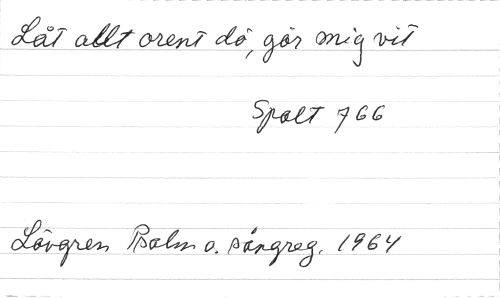 Låt allt orent dö, gör mig vit
Spalt 766
Lövgren Psalm o. sångreg. 1964